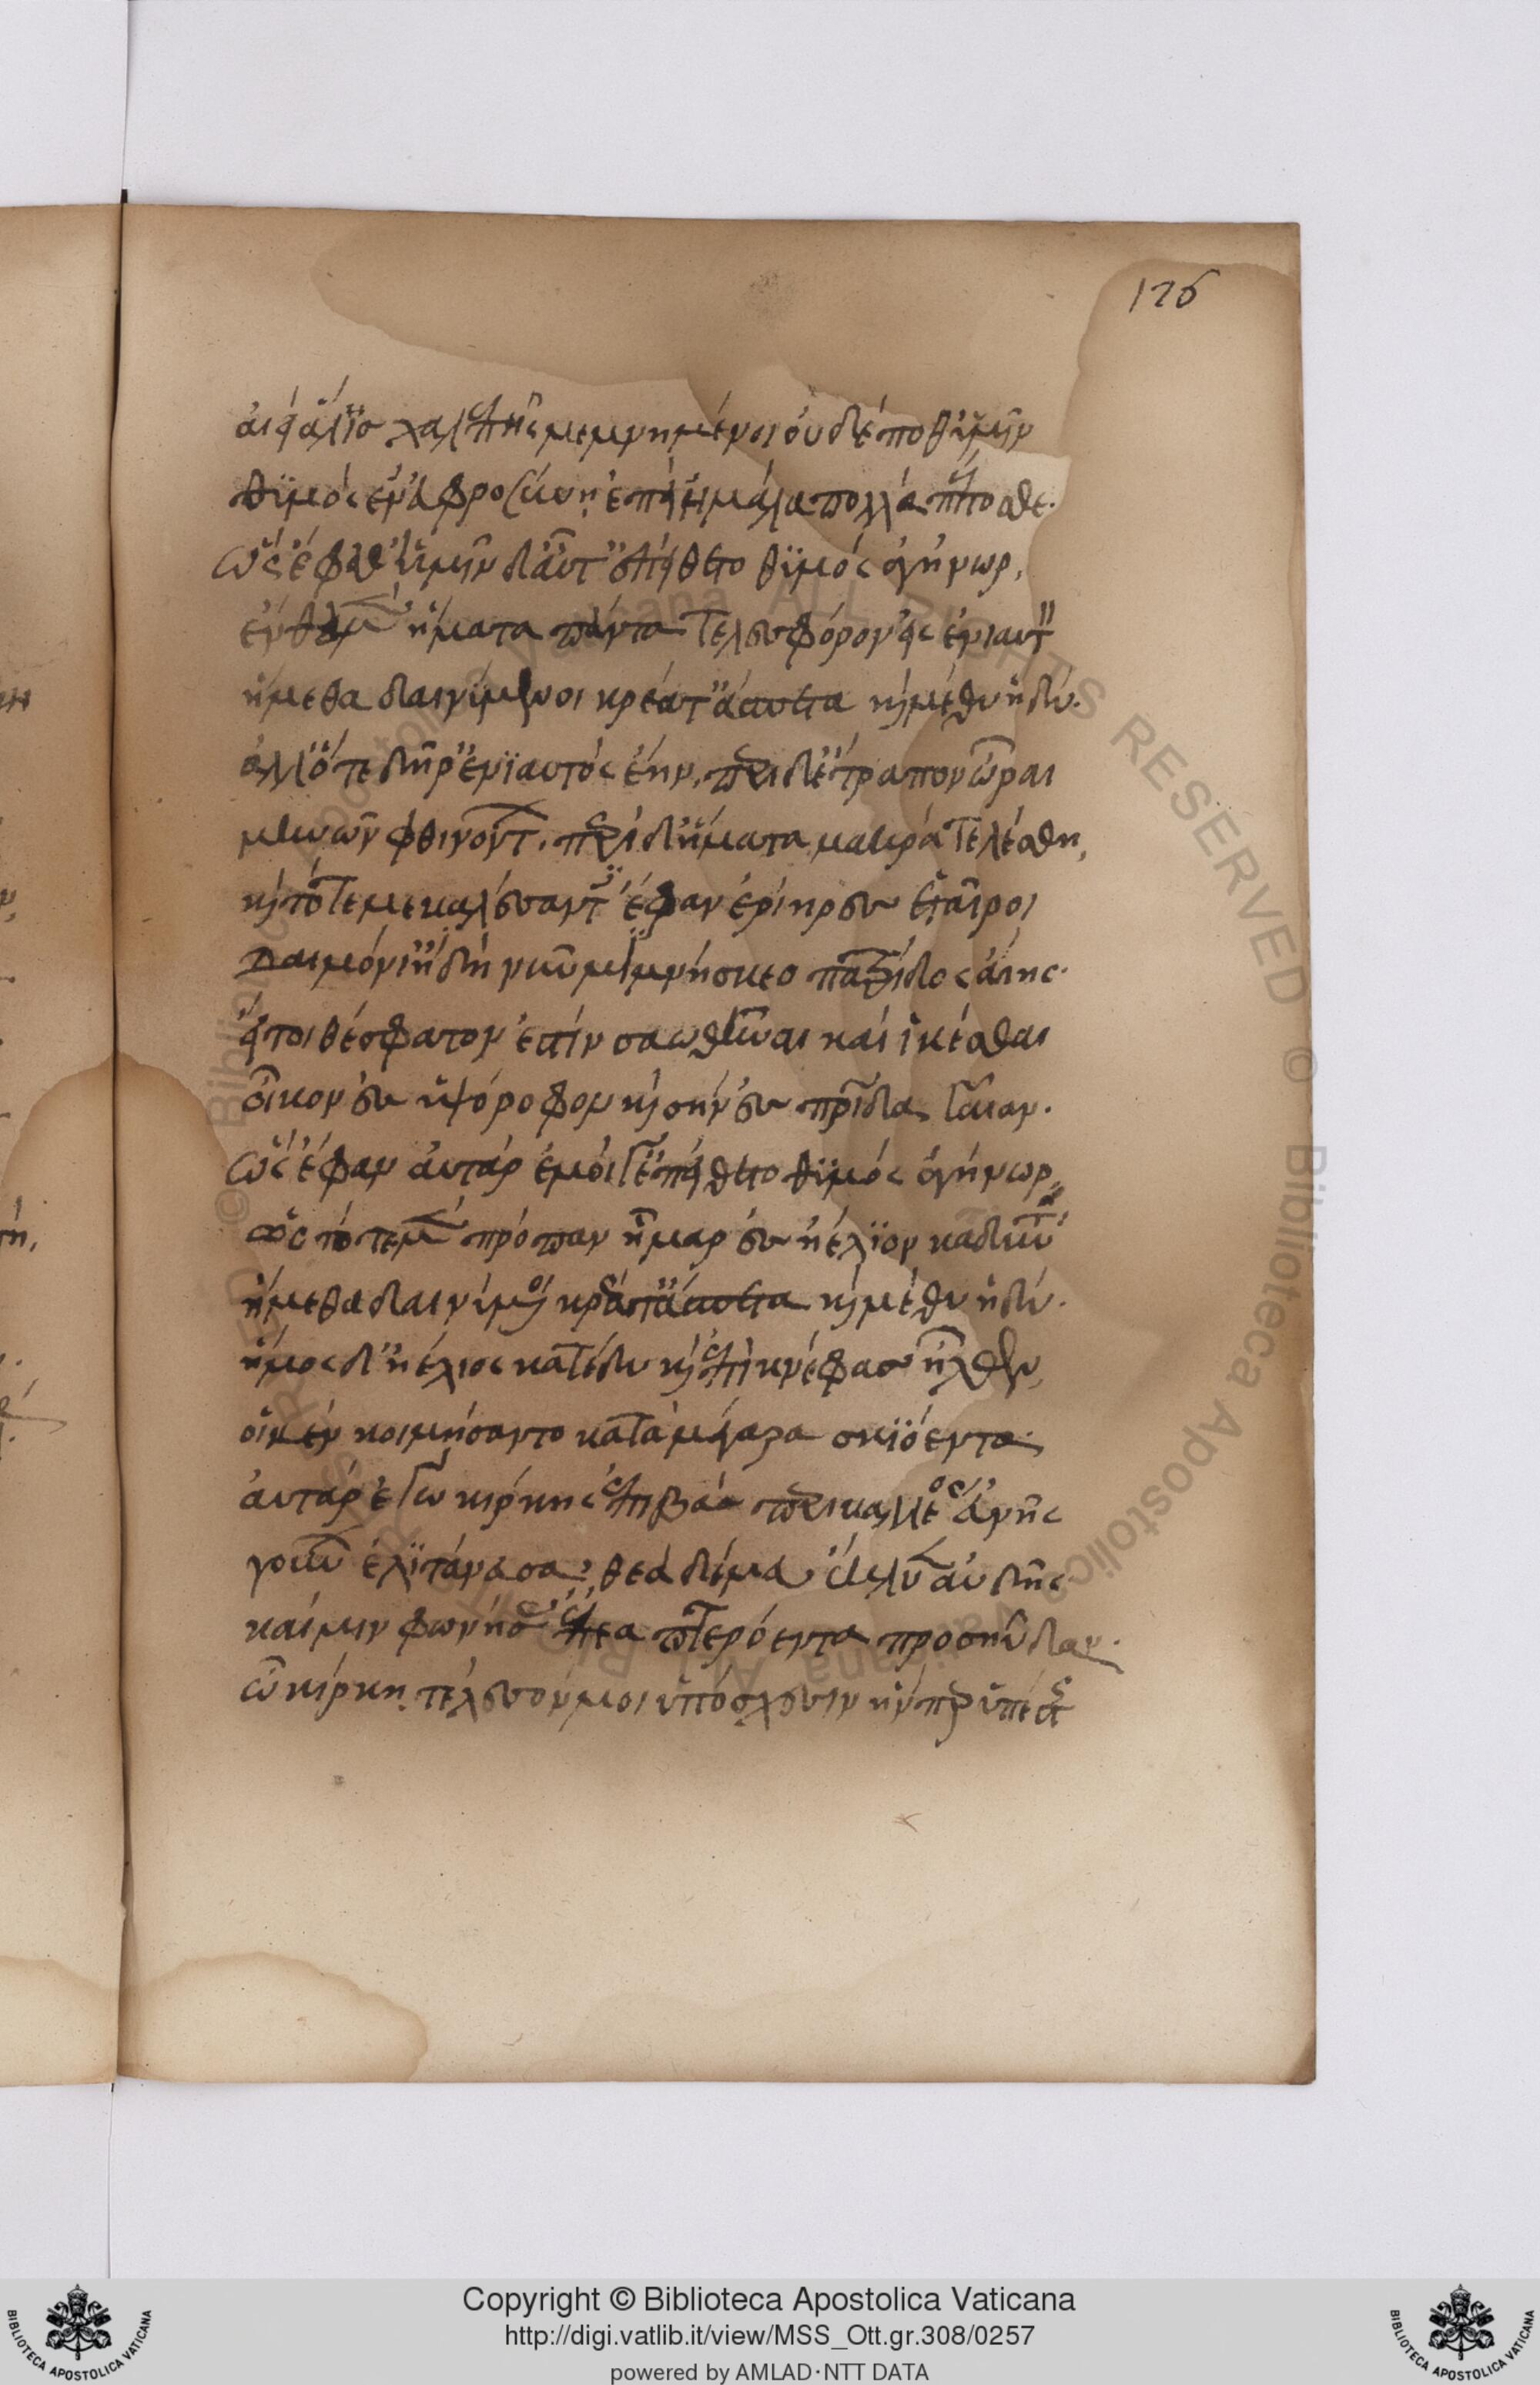 126
αἰὲν ἄλης χαλεπῆς μεμνημένοι οὐδέ ποθ' ὑμῖν
θυμὸς ἐν εὐφροσύνῃ ἐπειὴ μάλα πολλὰ πέποσθε.
ὣς ἔφαθ' ἡμῖν δ' αὖτ' ἐπεπείθετο θυμὸς ἀγήνωρ,
ἔνθα μὲν ἤματα πάντα τελεσφόρον εἰς ἐνιαυτὸν
ἥμεθα δαινύμενοι κρέα τ' ἄσπετα καὶ μέθυ ἡδύ.
ἀλλ' ὅτε δή ῥ' ἐνιαυτὸς ἔην, περὶ δ' ἔτραπον ὧραι
μηνῶν φθινόντων, περὶ δ' ἤματα μακρὰ τελέσθη,
καὶ τότε με καλέσαντες ἔφαν ἐρίηρες ἑταῖροι
δαιμόνι' ἤδη νῦν μιμνήσκεο πατρίδος αἴης.
εἴ τοι θέσφατόν ἐστιν σαωθῆναι καὶ ἱκέσθαι
οἶκον ἐς ὑψόροφον καὶ σὴν ἐς πατρίδα γαῖαν.
ὣς ἔφαν αὐτὰρ ἐμοί γ' ἐπεπείθετο θυμὸς ἀγήνωρ,
ὣς τότε μὲν πρόπαν ἦμαρ ἐς ἠέλιον καταδύντα
ἥμεθα δαινύμενοι κρέα τ' ἄσπετα καὶ μέθυ ἡδύ.
ἦμος δ' ἠέλιος κατέδυ καὶ ἐπὶ κνέφας ἦλθεν,
οἱ μὲν κοιμήσαντο κατὰ μέγαρα σκιόεντα.
αὐτὰρ ἐγὼ κίρκης ἐπιβὰς περικαλλέος εὐνῆς
γούνων ἐλιτάνευσα, θεὰ δέ μευ ἔκλυεν αὐδῆς
καί μιν φωνήσας ἔπεα πτερόεντα προσηύδων.
ὦ κίρκη τέλεσόν μοι ὑπόσχεσιν ἥν περ ὑπέστης
Copyright © Biblioteca Apostolica Vaticana
http://digi.vatlib.it/view/MSS_Ott.gr.308/0257
powered by AMLAD·NTT DATA